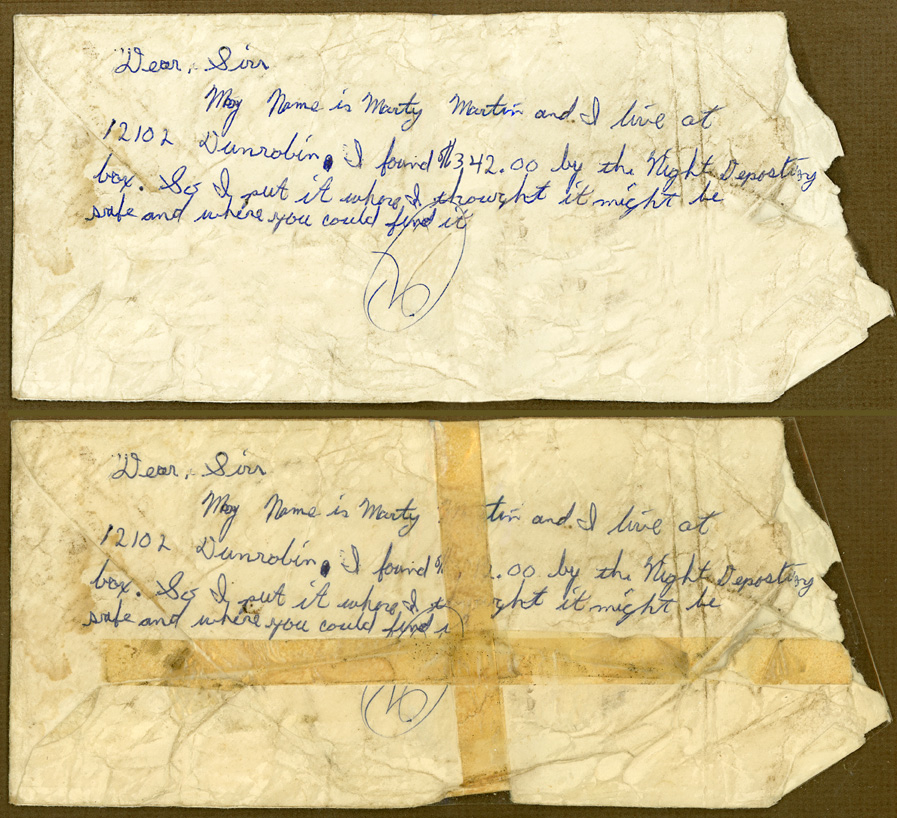 Dear, Sirr
My Name is Marty Martin and I live at
12102 Dunrobin, I found $342.00 by the Night Deposting
box. So I put it where I throught it might be
safe and where you could find it
Dear, Sirr
My Name is Marty tin and I live at
12102 Dunrobin, I found .00 by the Night Deposting
box. So I put it where I t ght it might be
safe and where you could find i